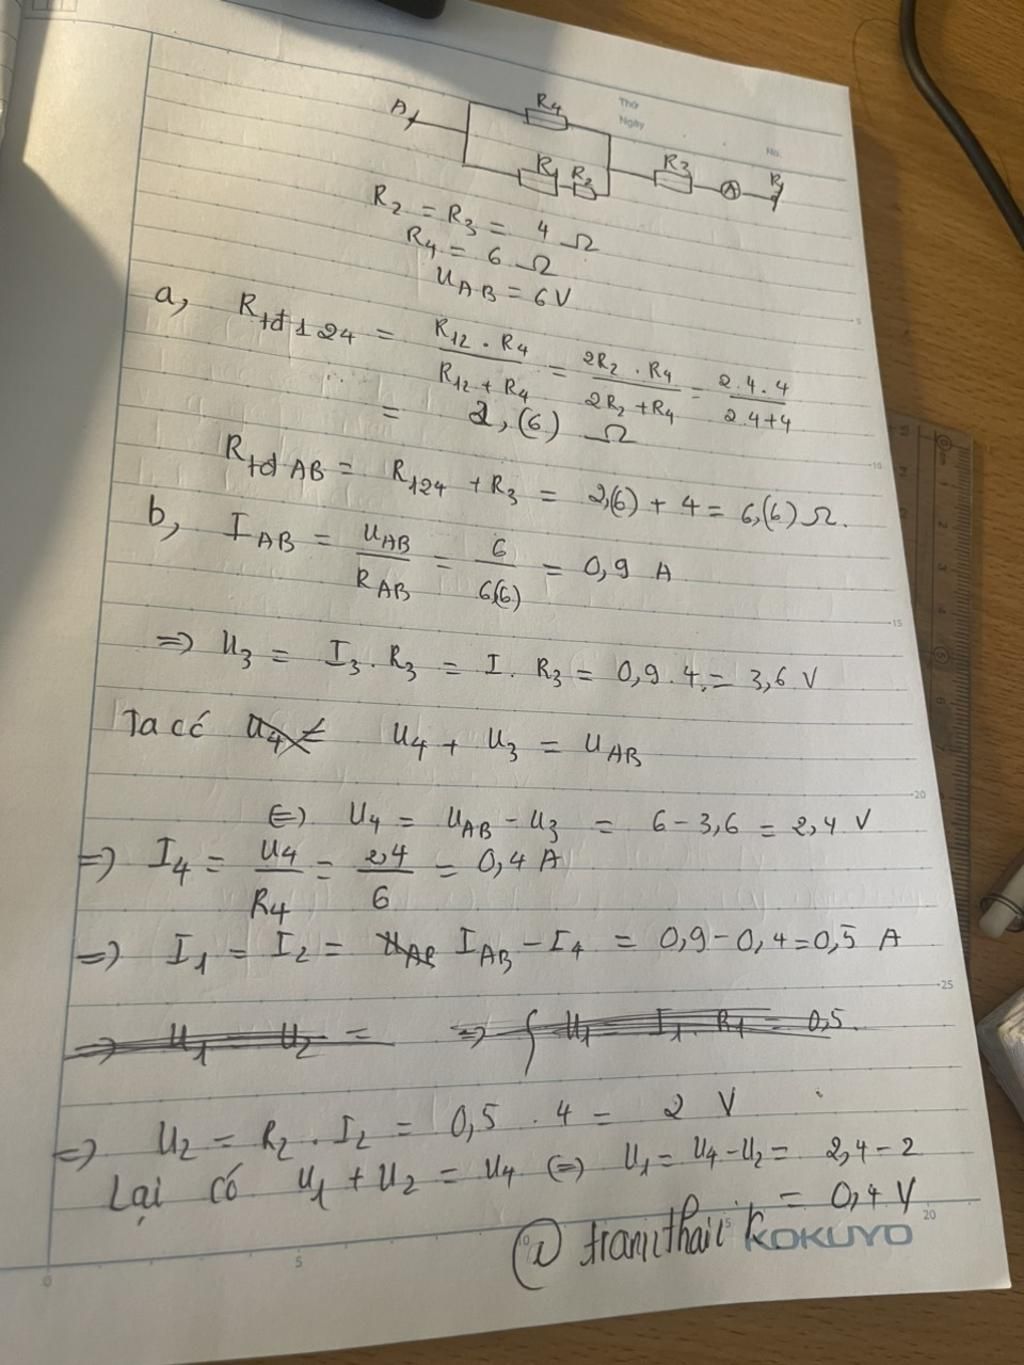 Thứ
Ngày
No.
A R4
R1 R2 R3 A B
R2 = R3 = 4 Ω
R4 = 6 Ω
UAB = 6V
a, Rtđ124 = R12 . R4 / R12 + R4 = 2R2 . R4 / 2R2 + R4 = 2.4.4 / 2.4+4
= 2,(6) Ω
Rtđ AB = R124 + R3 = 2,(6) + 4 = 6,(6) Ω.
b, IAB = UAB / RAB = 6 / 6,(6) = 0,9 A
=> U3 = I3 . R3 = I . R3 = 0,9 . 4 = 3,6 V
Ta có U4 U4 + U3 = UAB
<=> U4 = UAB - U3 = 6 - 3,6 = 2,4 V
=> I4 = U4 / R4 = 2,4 / 6 = 0,4 A
=> I1 = I2 = UAB IAB - I4 = 0,9 - 0,4 = 0,5 A
=> U1 = U2 = => { U1 = I1 . R1 = 0,5.
=> U2 = R2 . I2 = 0,5 . 4 = 2 V
Lại có U1 + U2 = U4 <=> U1 = U4 - U2 = 2,4 - 2
= 0,4 V
KOKUYO
5
10
15
20
25
0
5
10
15
20